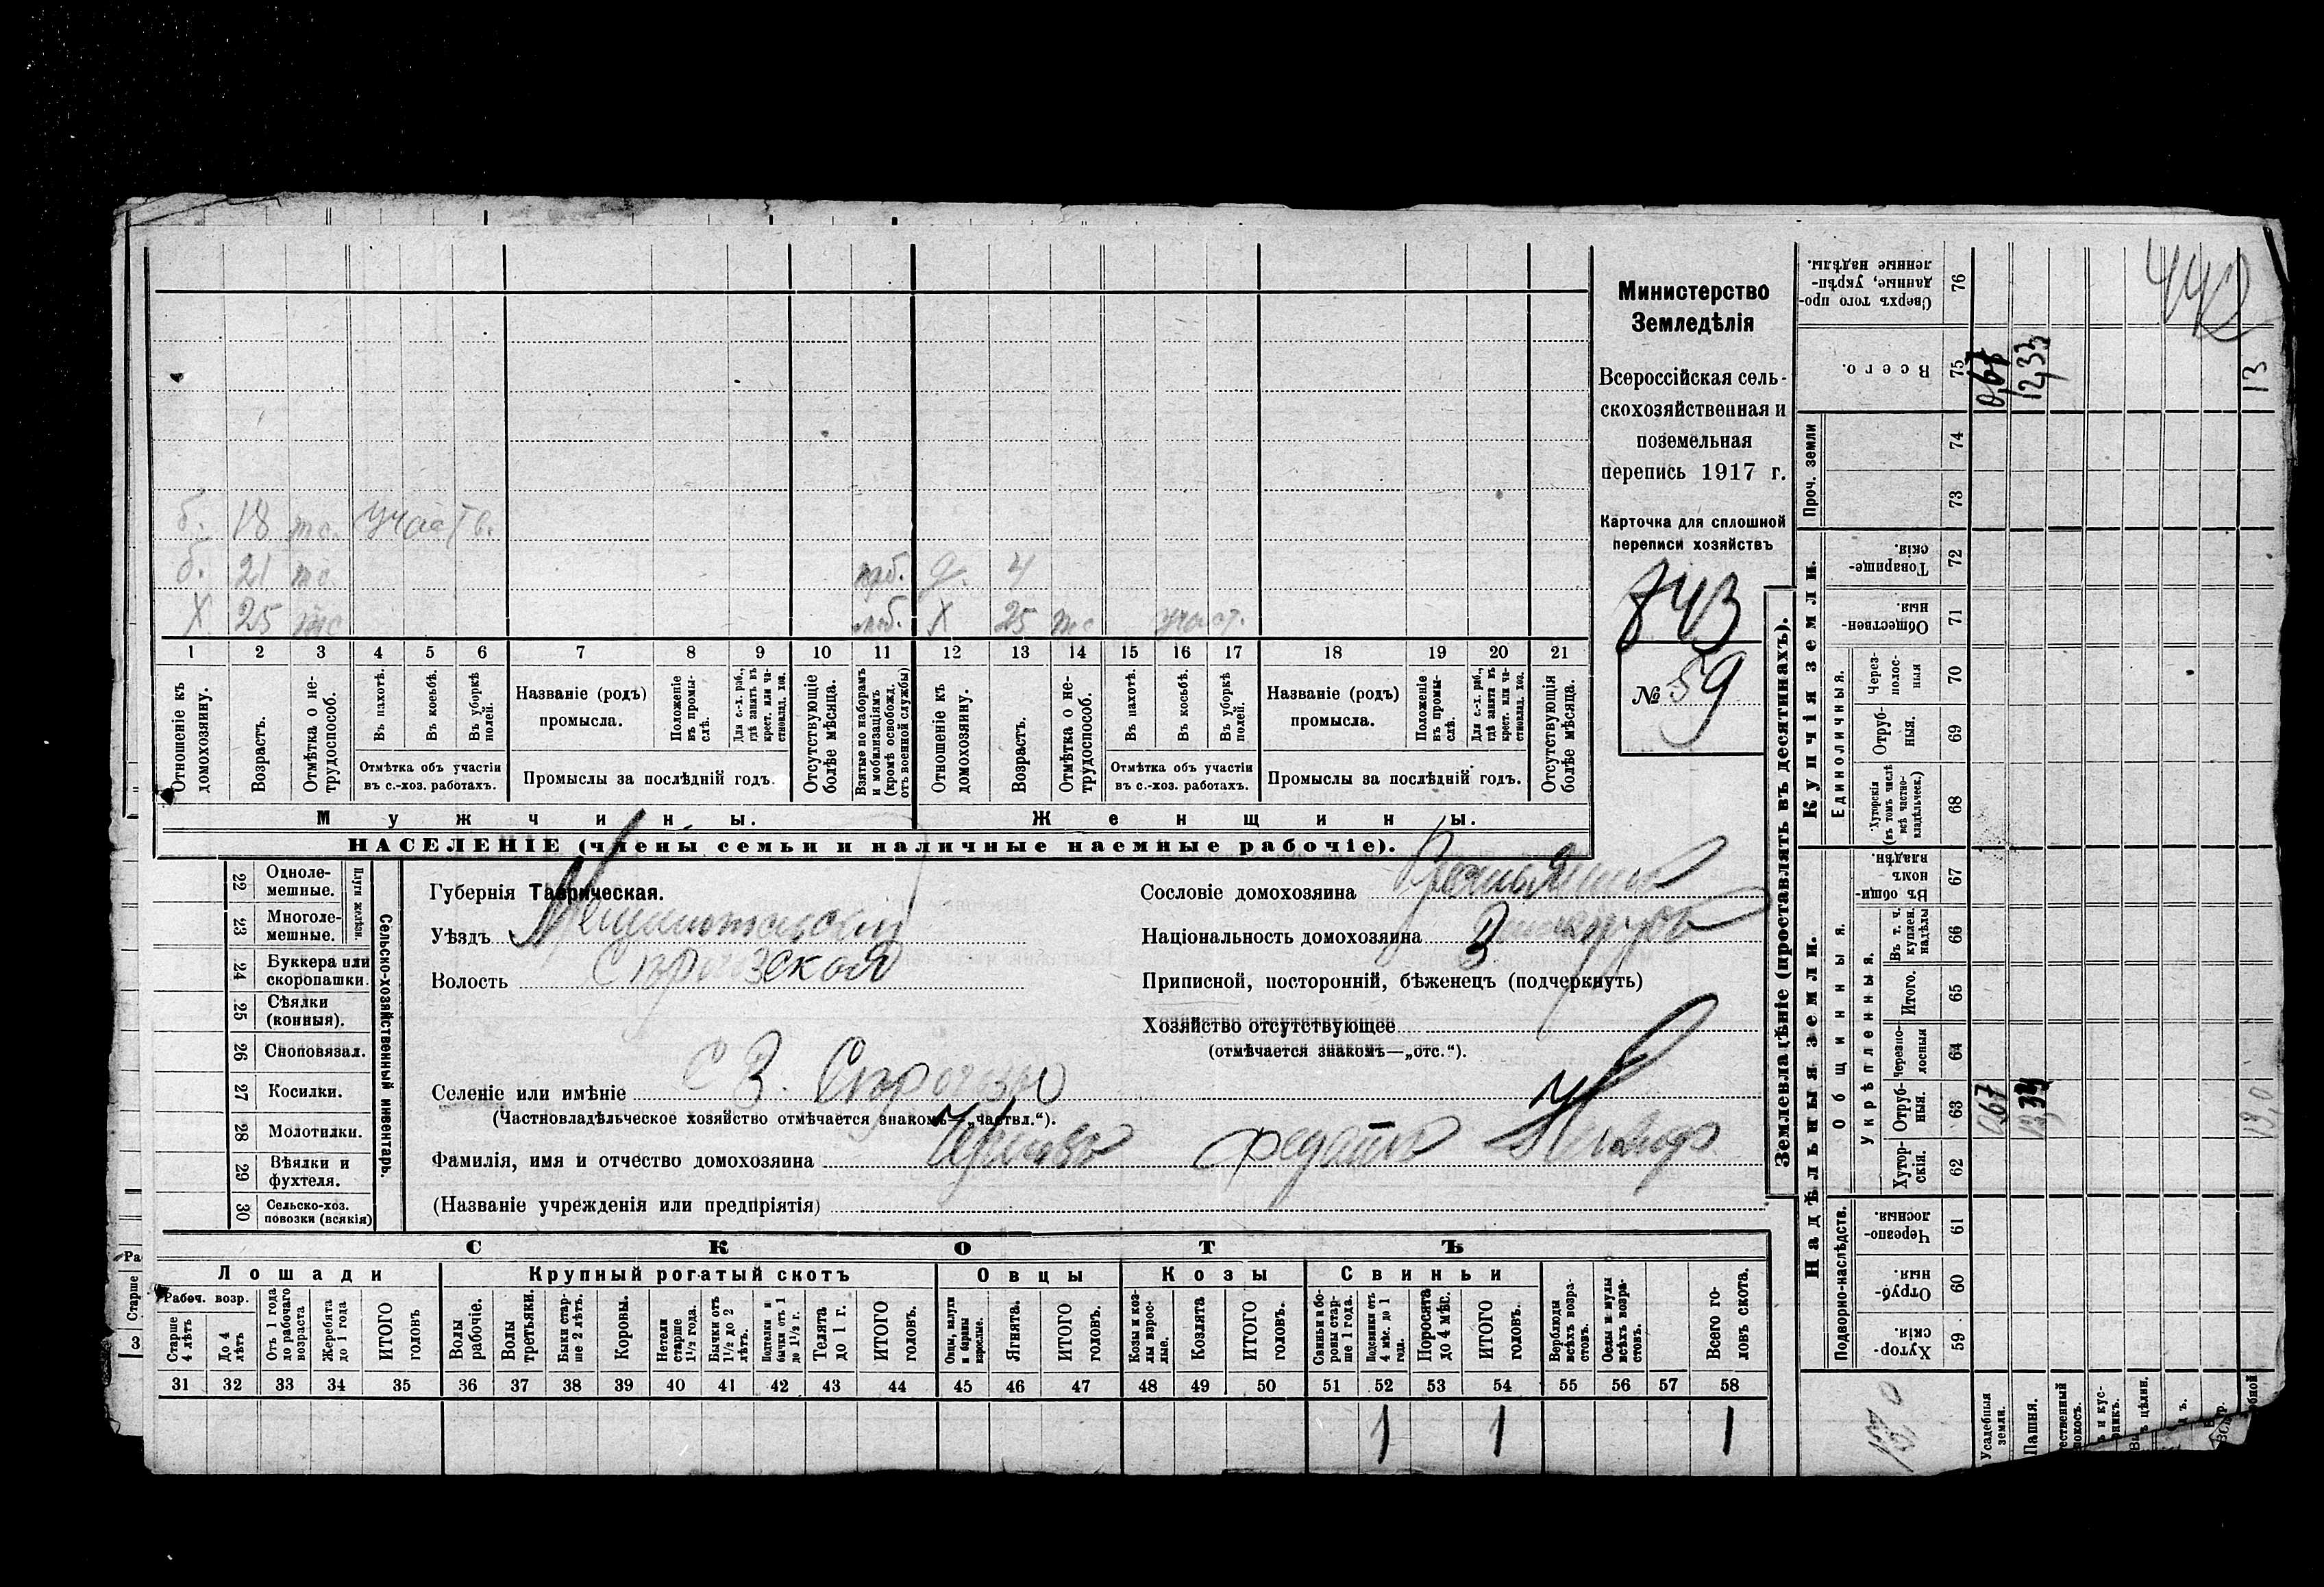 442
б. 18 тс. участв.
б. 21 тс. моб. д. 4
X 25 тс моб. X 25 тс участ.
1 2 3 4 5 6 7 8 9 10 11 12 13 14 15 16 17 18 19 20 21
Отношеніе къ домохозяину.
Возрастъ.
Отмѣтка о не-трудоспособ.
Въ пахотѣ.
Въ косьбѣ.
Въ уборкѣ полей.
Отмѣтка объ участіи въ с.-хоз. работахъ.
Названіе (родъ) промысла.
Положеніе въ промы-слѣ.
Для с.-х. раб., гдѣ занятъ въ крест. или ча-стновлад. хоз.
Промыслы за послѣдній годъ.
Отсутствующіе болѣе мѣсяца.
Взятые по наборамъ и мобилизаціямъ (кромѣ освобожд. отъ военной службы)
Отношеніе къ домохозяину.
Возрастъ.
Отмѣтка о не-трудоспособ.
Въ пахотѣ.
Въ косьбѣ.
Въ уборкѣ полей.
Отмѣтка объ участіи въ с.-хоз. работахъ.
Названіе (родъ) промысла.
Положеніе въ промы-слѣ.
Для с.-х. раб., гдѣ занята въ крест. или ча-стновлад. хоз.
Промыслы за послѣдній годъ.
Отсутствующія болѣе мѣсяца.
Мужчины. Женщины.
НАСЕЛЕНІЕ (члены семьи и наличные наемные рабочіе).
Министерство
Земледѣлія
Всероссійская сель-
скохозяйственная и
поземельная
перепись 1917 г.
Карточка для сплошной
переписи хозяйствъ
843
№ 59
22 Одноле-мешные.
23 Многоле-мешные.
Плуги желѣзн.
24 Буккера или скоропашки.
25 Сѣялки (конныя).
26 Сноповязал.
27 Косилки.
28 Молотилки.
29 Вѣялки и фухтеля.
30 Сельско-хоз. повозки (всякія)
Сельско-хозяйственный инвентарь.
Губернія Таврическая.
Уѣздъ Мелитопольскій
Волость
Селеніе или имѣніе
(Частновладѣльческое хозяйство отмѣчается знакомъ—„частвл.“).
Фамилія, имя и отчество домохозяина
(Названіе учрежденія или предпріятія)
Сословіе домохозяина
Національность домохозяина
Приписной, посторонній, бѣженецъ (подчеркнуть)
Хозяйство отсутствующее
(отмѣчается знакомъ—„отс.“).
СКОТЪ
Лошади Крупный рогатый скотъ Овцы Козы Свиньи
Рабоч. возр.
Старше 4 лѣтъ
До 4 лѣтъ
Отъ 1 года до рабочаго возраста
Жеребята до 1 года
ИТОГО головъ
Волы рабочіе.
Волы третьяки.
Быки стар-ше 2 лѣтъ.
Коровы.
Нетели старше 1½ года.
Бычки отъ 1½ до 2 лѣтъ.
Подтелки и бычки отъ 1 до 1½ г.
Телята до 1 г.
ИТОГО головъ.
Овцы, валухи и бараны взрослые.
Ягнята.
ИТОГО головъ.
Козы и коз-лы взрос-лые.
Козлята
ИТОГО головъ.
Свиньи и бо-ровы стар-ше 1 года.
Подсвинки отъ 4 мѣс. до 1 года.
Поросята до 4 мѣс.
ИТОГО головъ.
Верблюды всѣхъ возра-стовъ.
Ослы и мулы всѣхъ возра-стовъ.
Всего го-ловъ скота.
31 32 33 34 35 36 37 38 39 40 41 42 43 44 45 46 47 48 49 50 51 52 53 54 55 56 57 58
1 1 1
Землевладѣніе (проставлять въ десятинахъ).
Надѣльныя земли. Купчія земли.
Подворно-наслѣдств.
Общинныя.
Укрѣпленныя.
Единоличныя.
Проч. земли
59 Хутор-скія.
60 Отруб-ныя.
61 Черезпо-лосныя.
62 Хутор-скія.
63 Отруб-ныя. 0,67 13,0
64 Черезпо-лосныя
65 Итого.
66 Въ т. ч. куплен. надѣлы
67 Въ общин-номъ владѣн.
68 Хуторскія (въ томъ числѣ всѣ частно-владѣльческ.)
69 Отруб-ныя.
70 Через-полос-ныя
71 Обществен-ныя.
72 Товарище-скія.
73
74
75 Всего. 0,67 12,33 13
76 Сверхъ того про-данные, укрѣп-ленные надѣлы.
Усадебныя земли.
Пашня.